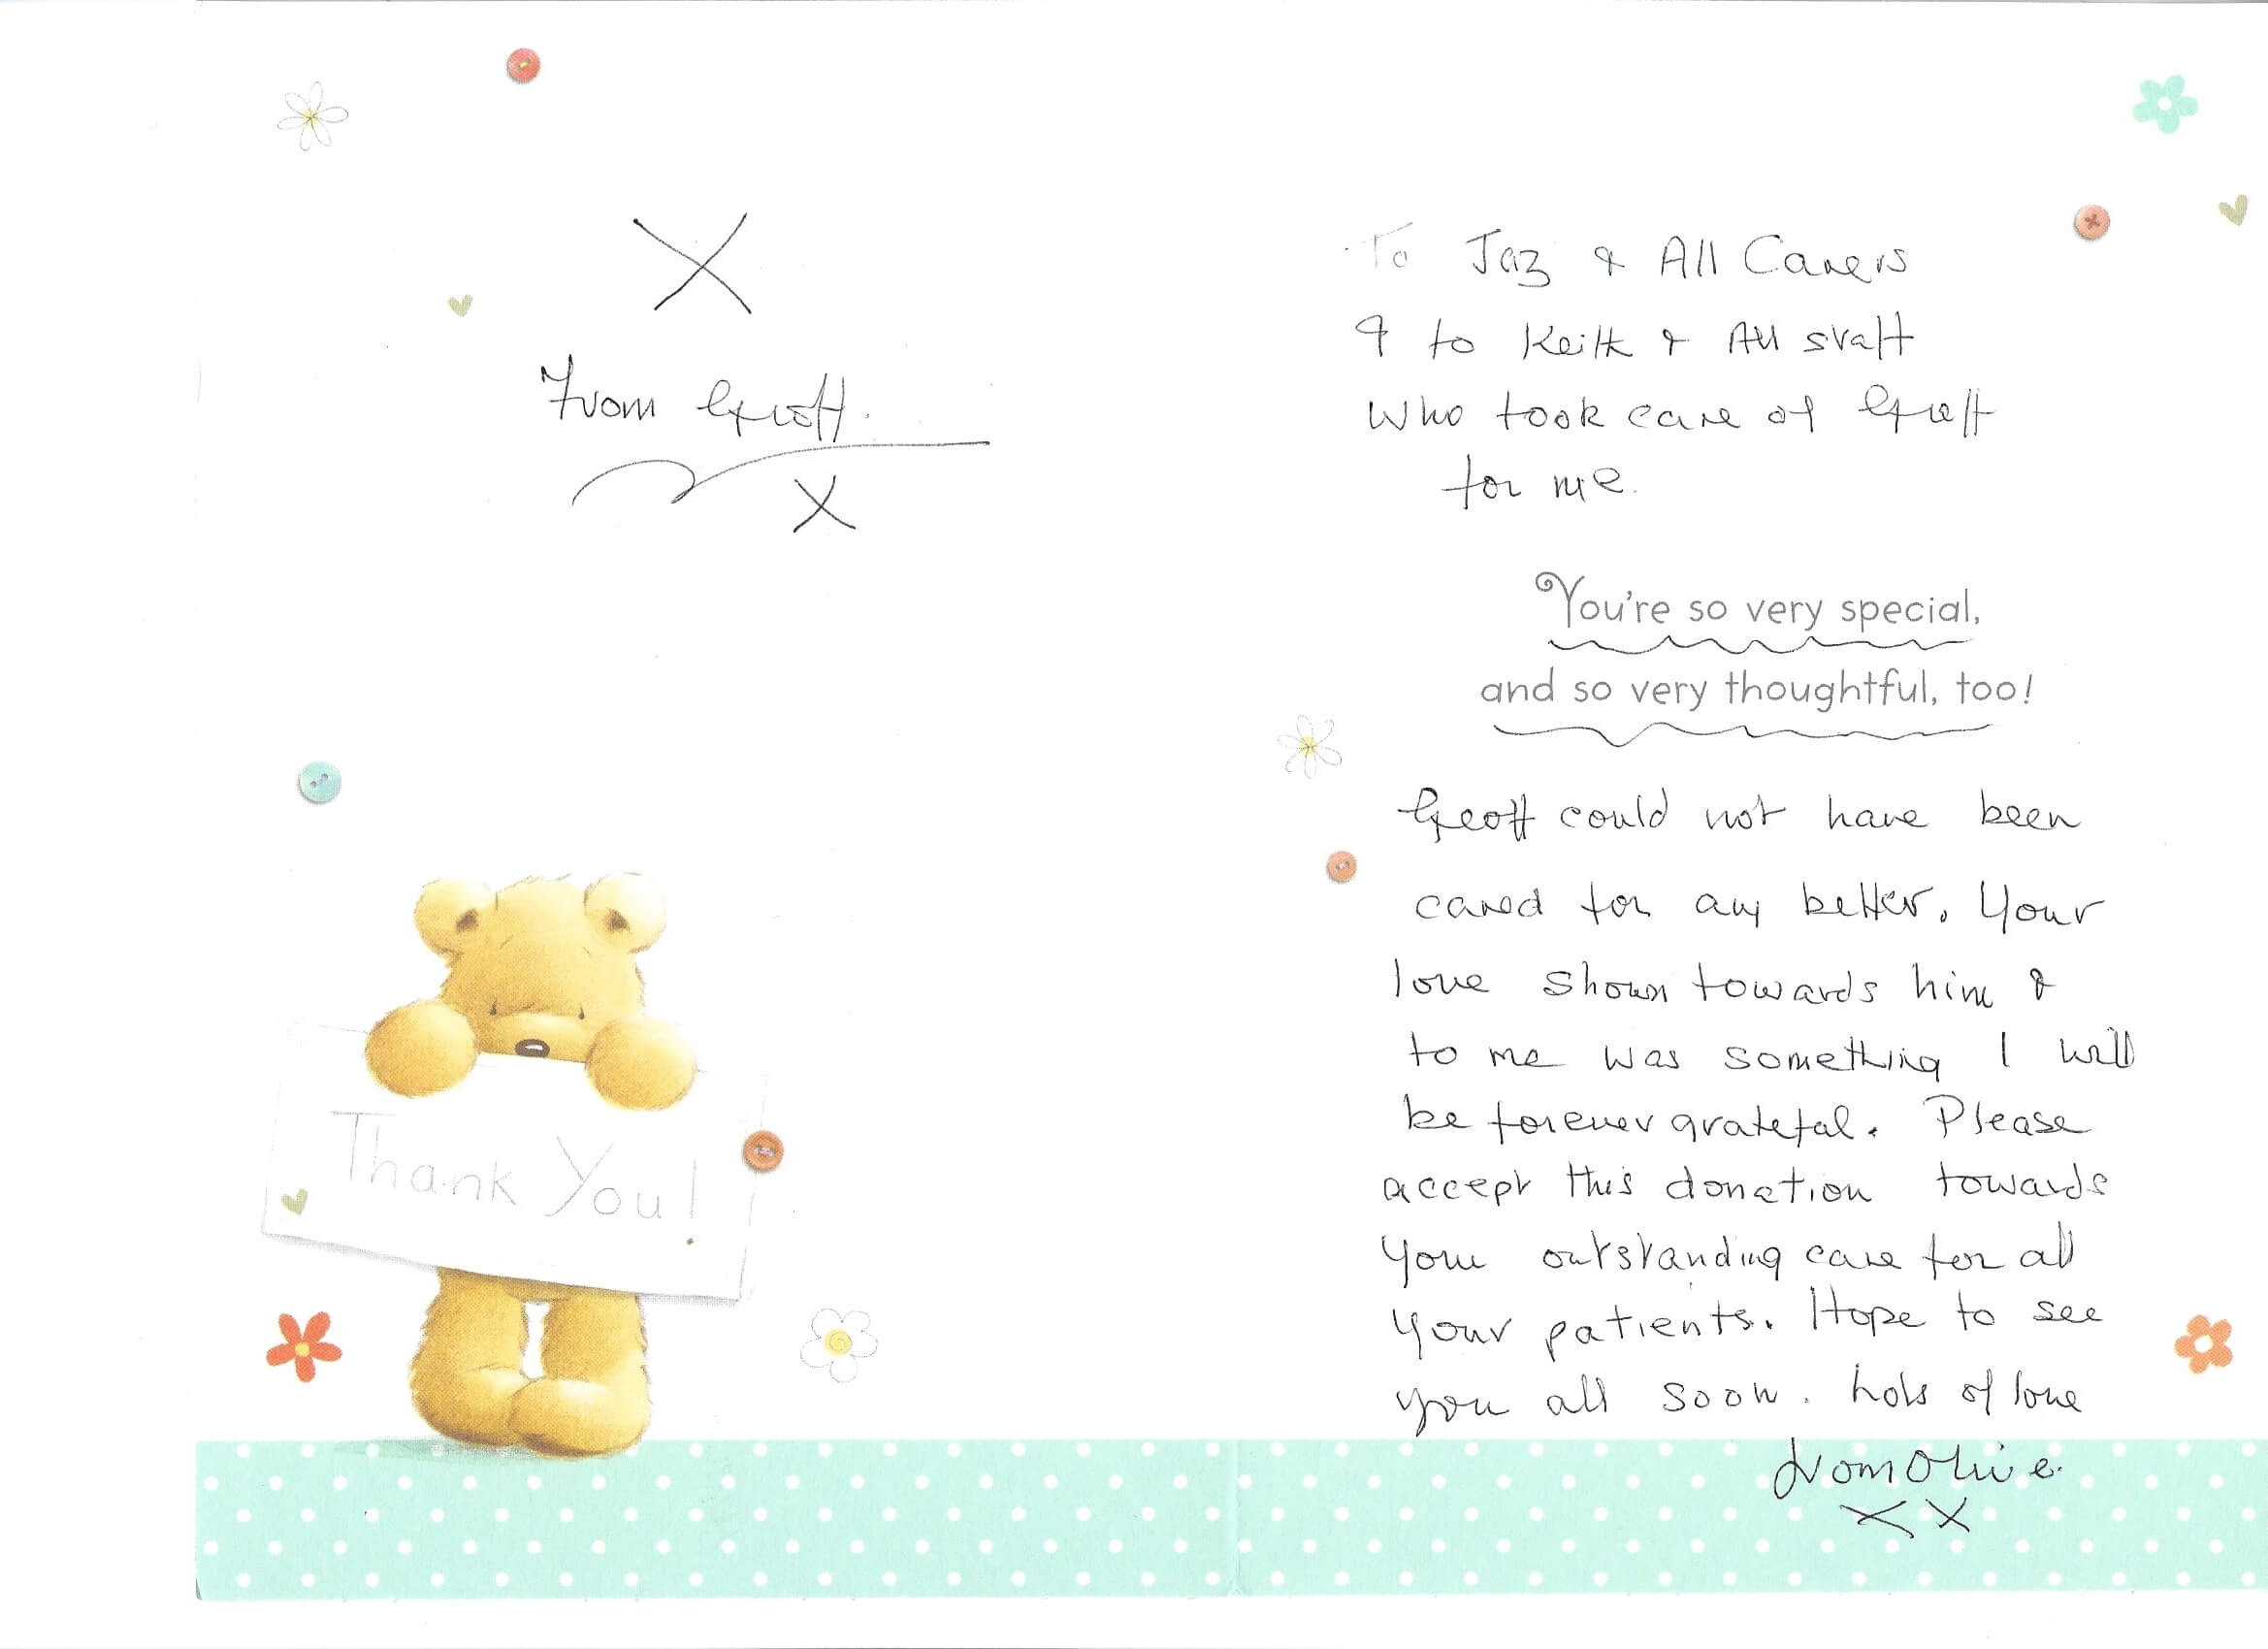 X
From Geoff.
X
Thank You!
To Jaz & All Carers
& to Keith & All staff
who took care of Geoff
for me.
You're so very special,
and so very thoughtful, too!
Geoff could not have been
cared for any better. Your
love shown towards him &
to me was something I will
be forever grateful. Please
accept this donation towards
your outstanding care for all
your patients. Hope to see
you all soon. Lots of love
from Olive.
XX